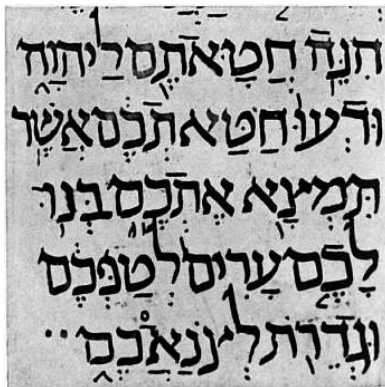 הִנֵּה חֲטָאתֶם לַיהוָה
וּדְעוּ חַטַּאתְכֶם אֲשֶׁר
תִּמְצָא אֶתְכֶם בְּנוּ
לָכֶם עָרִים לְטַפְּכֶם
וּגְדֵרֹת לְצֹנַאֲכֶם